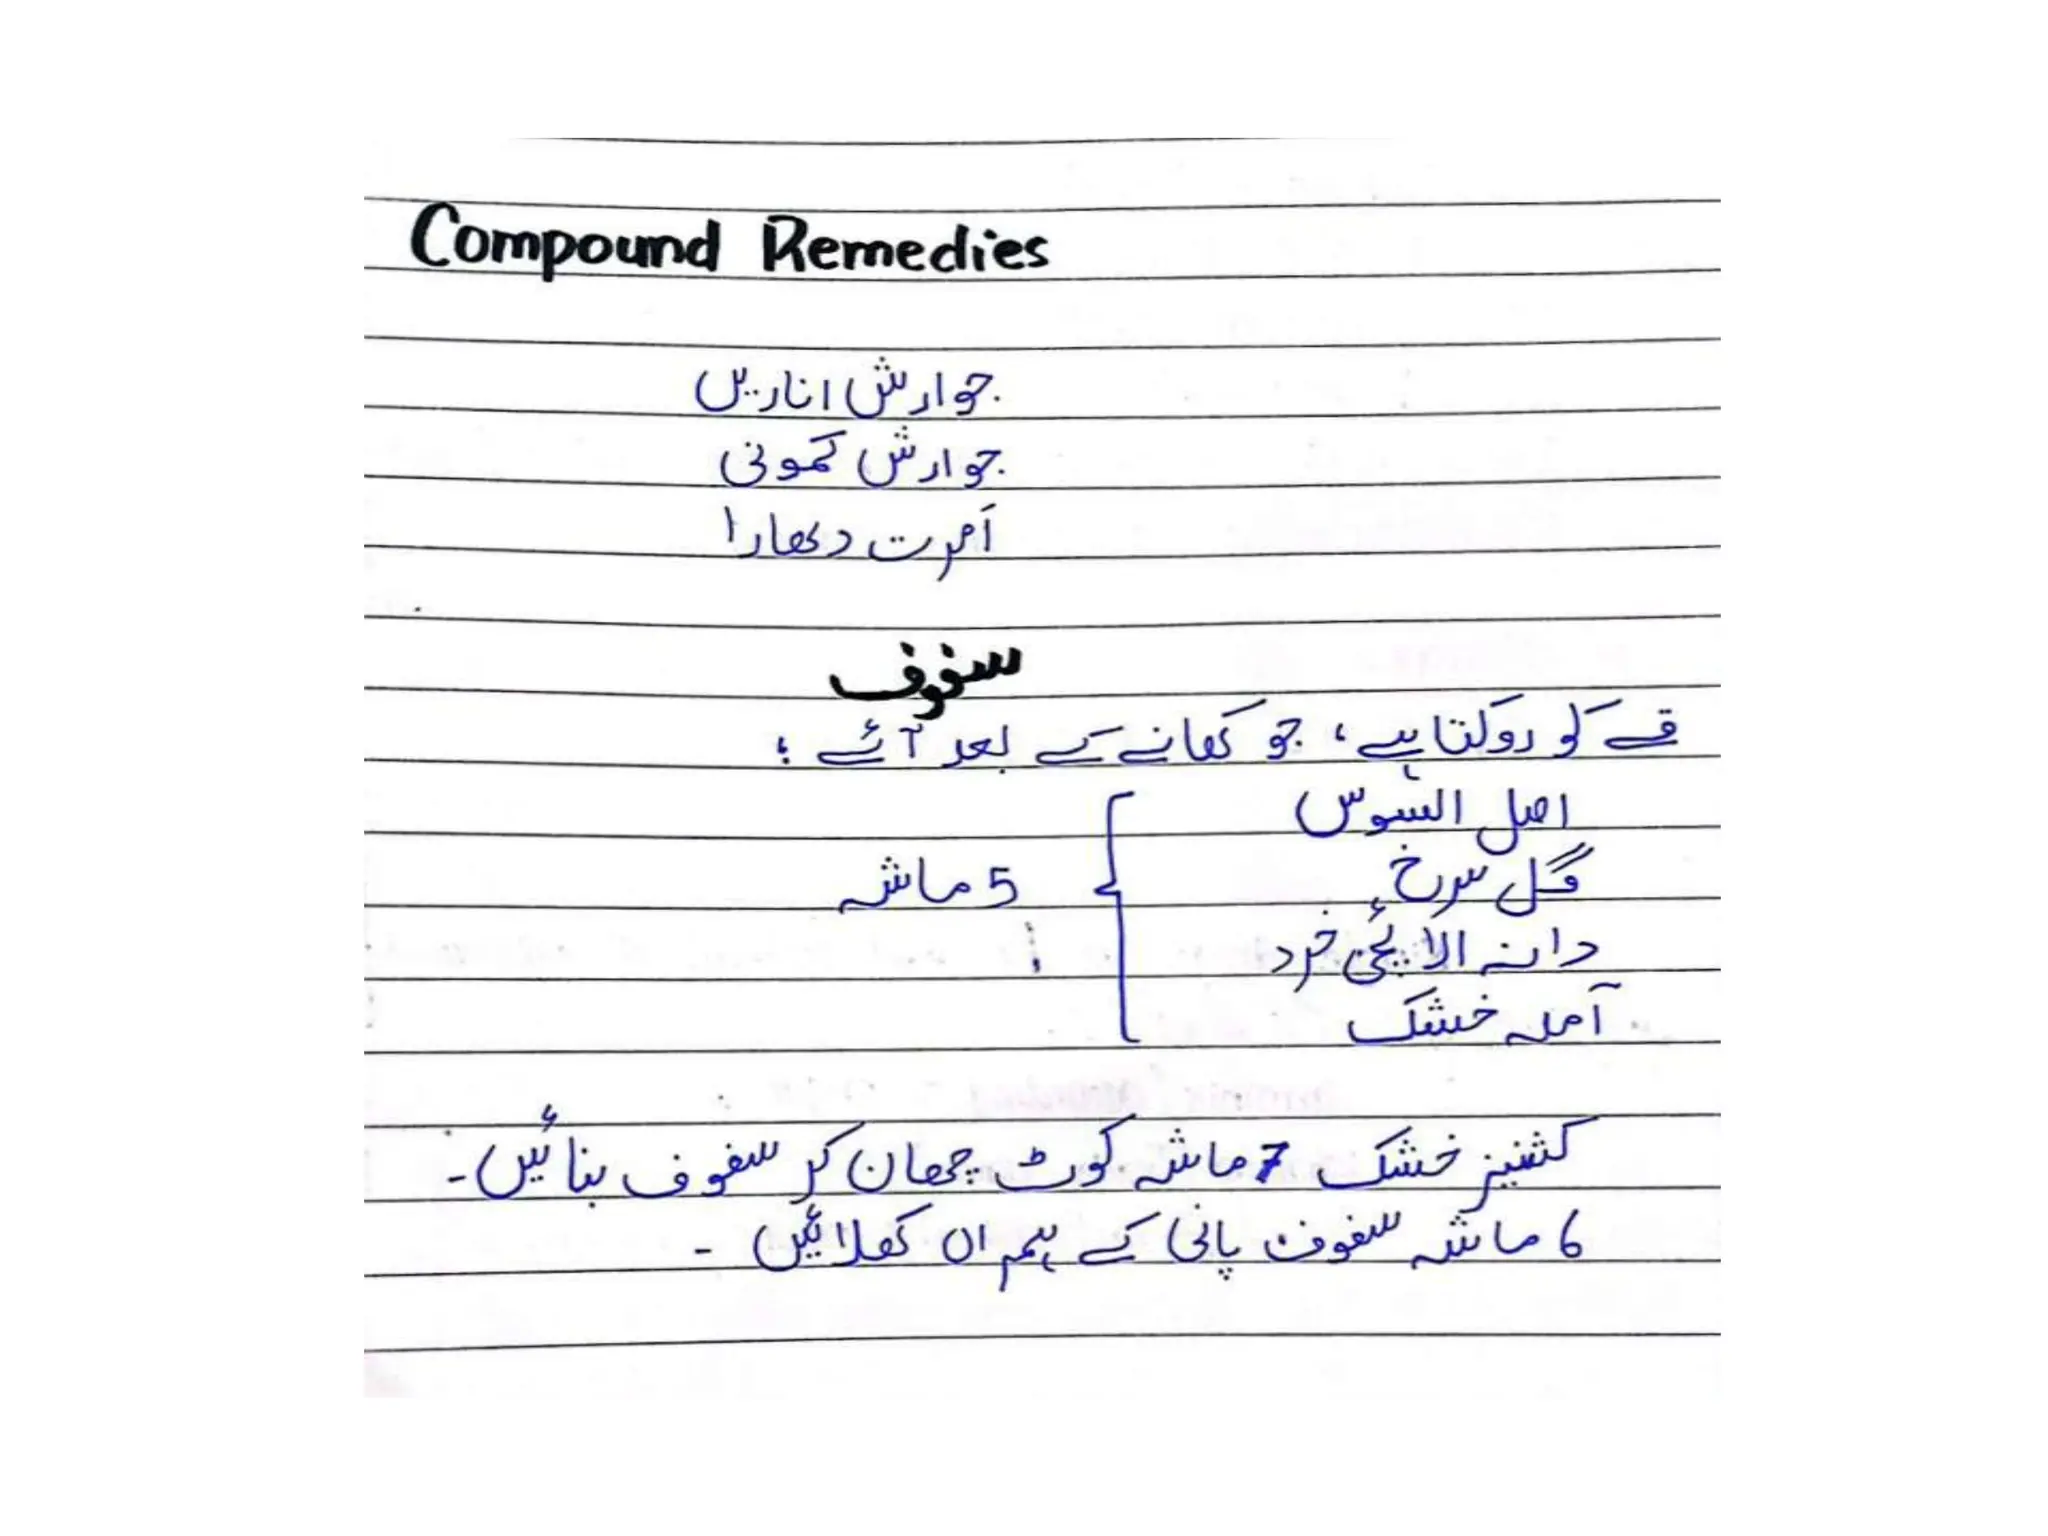 Compound Remedies
جوارش انارین
جوارش کمونی
امرت دھارا
سفوف
قے کو روکتا ہے، جو کھانے کے بعد آئے :
اصل السوس
گل سرخ
5 ماشہ
دانہ الائچی خرد
آملہ خشک
کشنیز خشک 7 ماشہ کوٹ چھان کر سفوف بنائیں۔
6 ماشہ سفوف پانی کے ہمراہ کھلائیں ۔